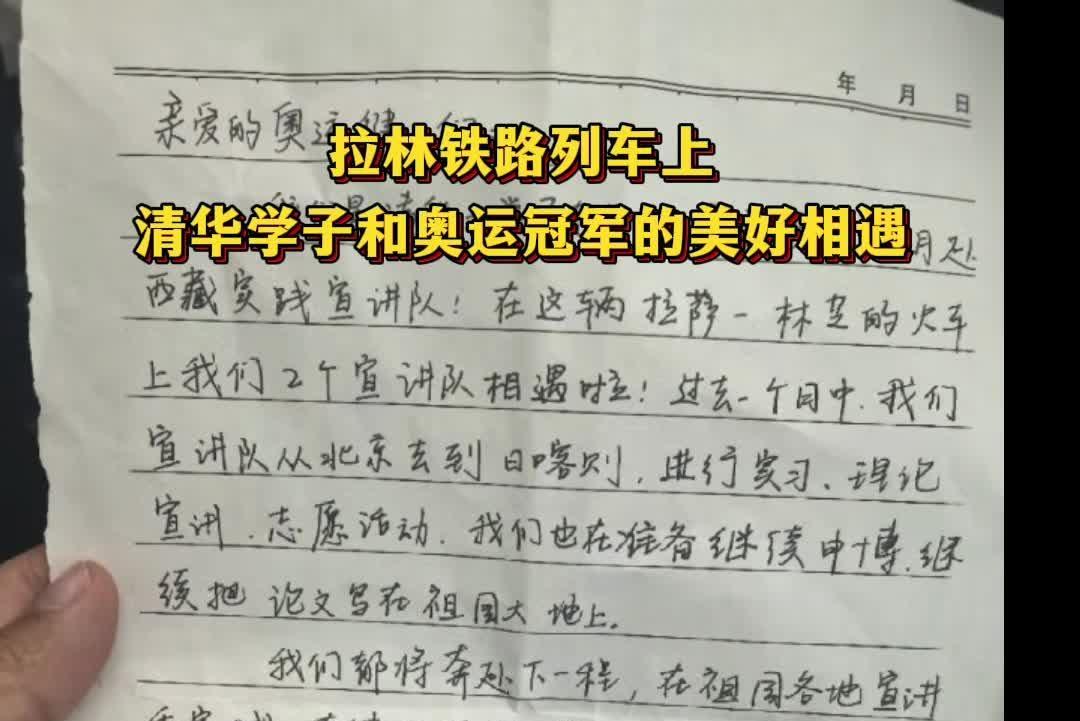 年 月 日
亲爱的奥运健
拉林铁路列车上
清华学子和奥运冠军的美好相遇
月赴
西藏实践宣讲队！在这辆拉萨－林芝的火车
上我们2个宣讲队相遇啦！过去一个月中，我们
宣讲队从北京去到日喀则，进行实习、理论
宣讲、志愿活动，我们也在准备继续申博，继
续把论文写在祖国大地上。
我们都将奔赴下一程，在祖国各地宣讲